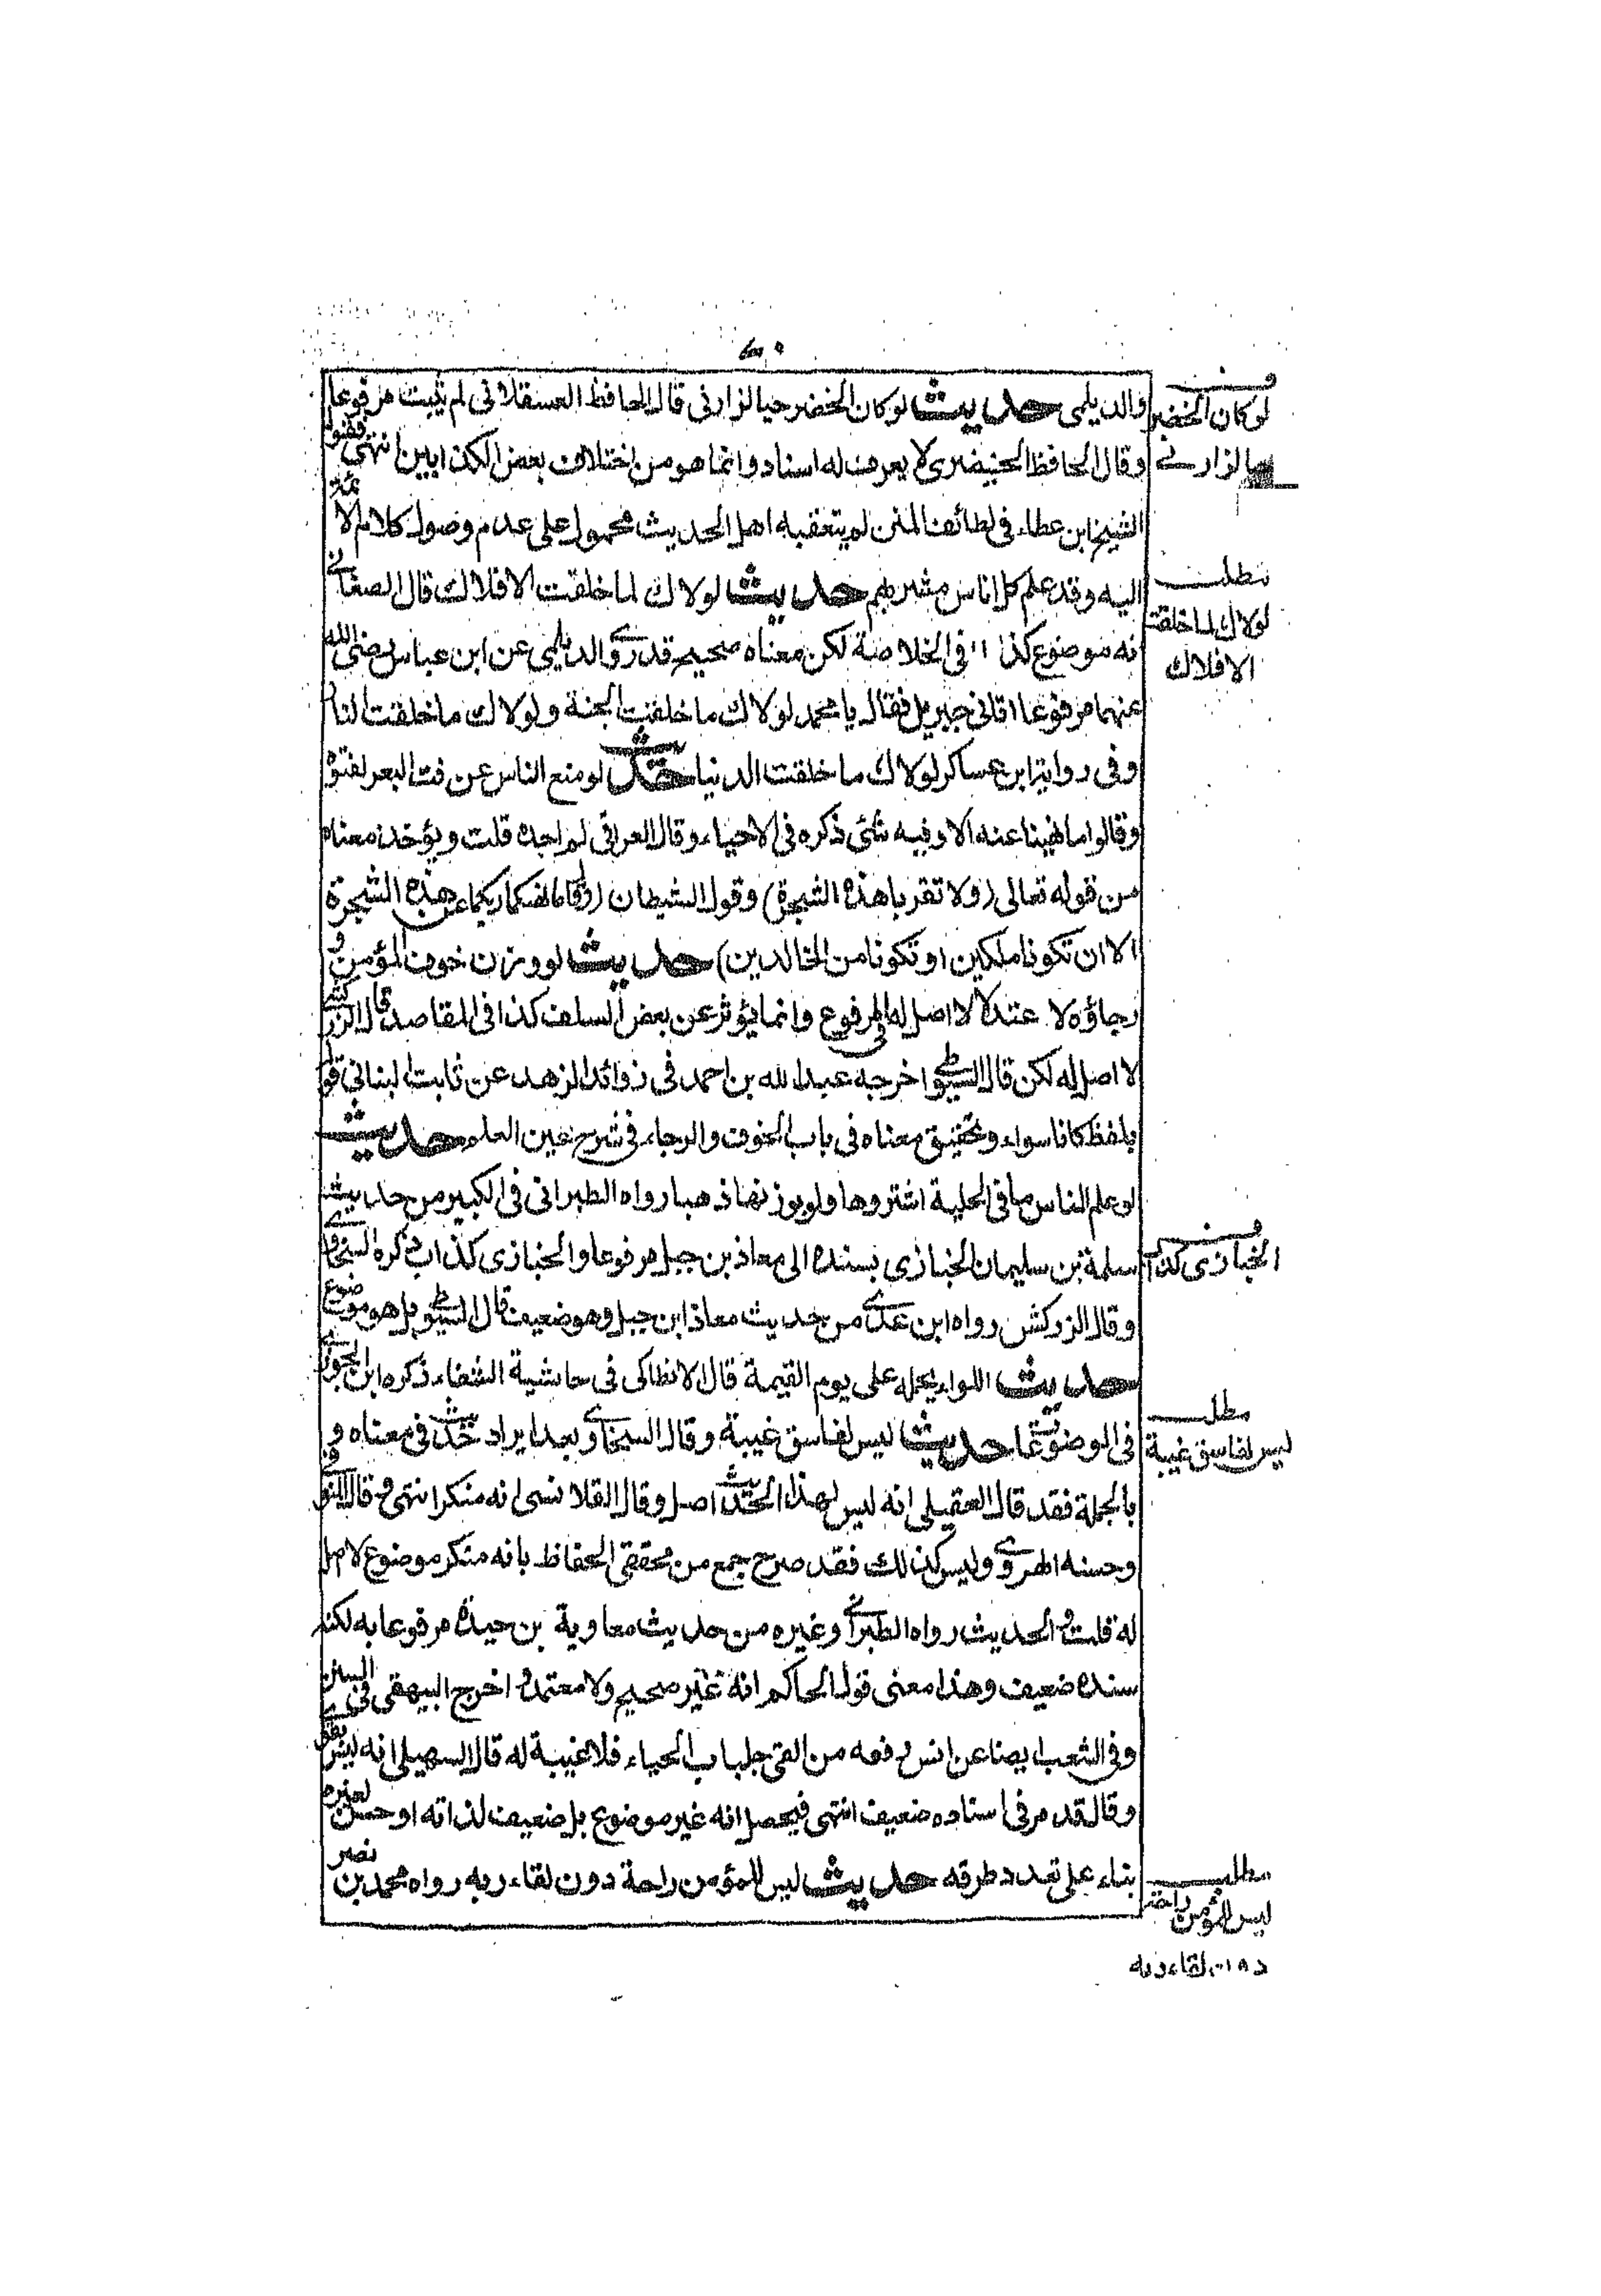 والديلمى حديث لوكان الخضر حيا لزارنى قال الحافظ العسقلانى لم يثبت مرفوعا
وقال الحافظ الخيضرى لا يعرف له اسناد وانما هو من اختلاف بعض الكذابين انتهى فقول
الشيخ ابن عطاء فى لطائف المنن لم يتعقبه اهل الحديث محمول على عدم وصول كلام الائمة
اليه وقد علم كل اناس مشربهم حديث لولاك لما خلقت الافلاك قال الصغانى
انه موضوع كذا فى الخلاصة لكن معناه صحيح قد روى الديلمى عن ابن عباس رضى الله
عنهما مرفوعا اتانى جبريل فقال يا محمد لولاك ما خلقت الجنة ولولاك ما خلقت النار
وفى رواية ابن عساكر لولاك ما خلقت الدنيا حديث لو منع الناس عن فت البعر لفتوه
وقالوا ما نهينا عنه الا وفيه شئ ذكره فى الاحياء وقال العراقى لم اجده قلت ويؤخذ معناه
من قوله تعالى (ولا تقربا هذه الشجرة) وقول الشيطان (وقال ما نهيكما ربكما عن هذه الشجرة
الا ان تكونا ملكين او تكونا من الخالدين) حديث لو وزن خوف المؤمن و
رجاؤه لا عتدلا لا اصل له فى المرفوع وانما يؤثر عن بعض السلف كذا فى المقاصد قال الزركشى
لا اصل له لكن قال السيوطى اخرجه عبد الله بن احمد فى زوائد الزهد عن ثابت البنانى قوله
بلفظ كانا سواء وتحقيق معناه فى باب الخوف والرجاء فى شرح عين العلم حديث
لو علم الناس ما فى الحلبة اشتروها ولو بوزنها ذهبا رواه الطبرانى فى الكبير من حديث
سلمة بن سليمان الخبازى بسنده الى معاذ بن جبل مرفوعا والخبازى كذاب ذكره السخاوى
وقال الزركش رواه ابن عدى من حديث معاذ ابن جبل وهو ضعيف قال السيوطى بل هو موضوع
حديث اللواء يحمله على يوم القيمة قال الانطاكى فى حاشية الشفاء ذكره ابن الجوزى
فى الموضوعات حديث ليس لفاسق غيبة وقال السخاوى بعد ايراد حديث فى معناه و
بالجملة فقد قال العقيلى انه ليس لهذا الحديث اصل وقال القلانسى انه منكر انتهى وقال المنوفى
وحسنه الهروى وليس كذلك فقد صرح جمع من محققى الحفاظ بانه منكر موضوع لا اصل
له قلت والحديث رواه الطبرانى وغيره من حديث معاوية بن حيدة مرفوعا به لكنه
سنده ضعيف وهذا معنى قول الحاكم انه غير صحيح ولا معتمد و اخرج البيهقى فى السنن
وفى الشعب ايضا عن انس رفعه من القى جلباب الحياء فلا غيبة له قال السهيلى انه ليس بقوى
وقال قد مر فى اسناده ضعيف انتهى فيحصل انه غير موضوع بل ضعيف لذاته او حسن لغيره
بناء على تعدد طرقه حديث ليس للمؤمن راحة دون لقاء ربه رواه محمد بن نصر
لوكان الخضر
حيا لزارنى
مطلب
لولاك لما خلقت
الافلاك
الخبازى كذاب
مطلب
ليس لفاسق غيبة
مطلب
ليس للمؤمن راحة
دون لقاء ربه